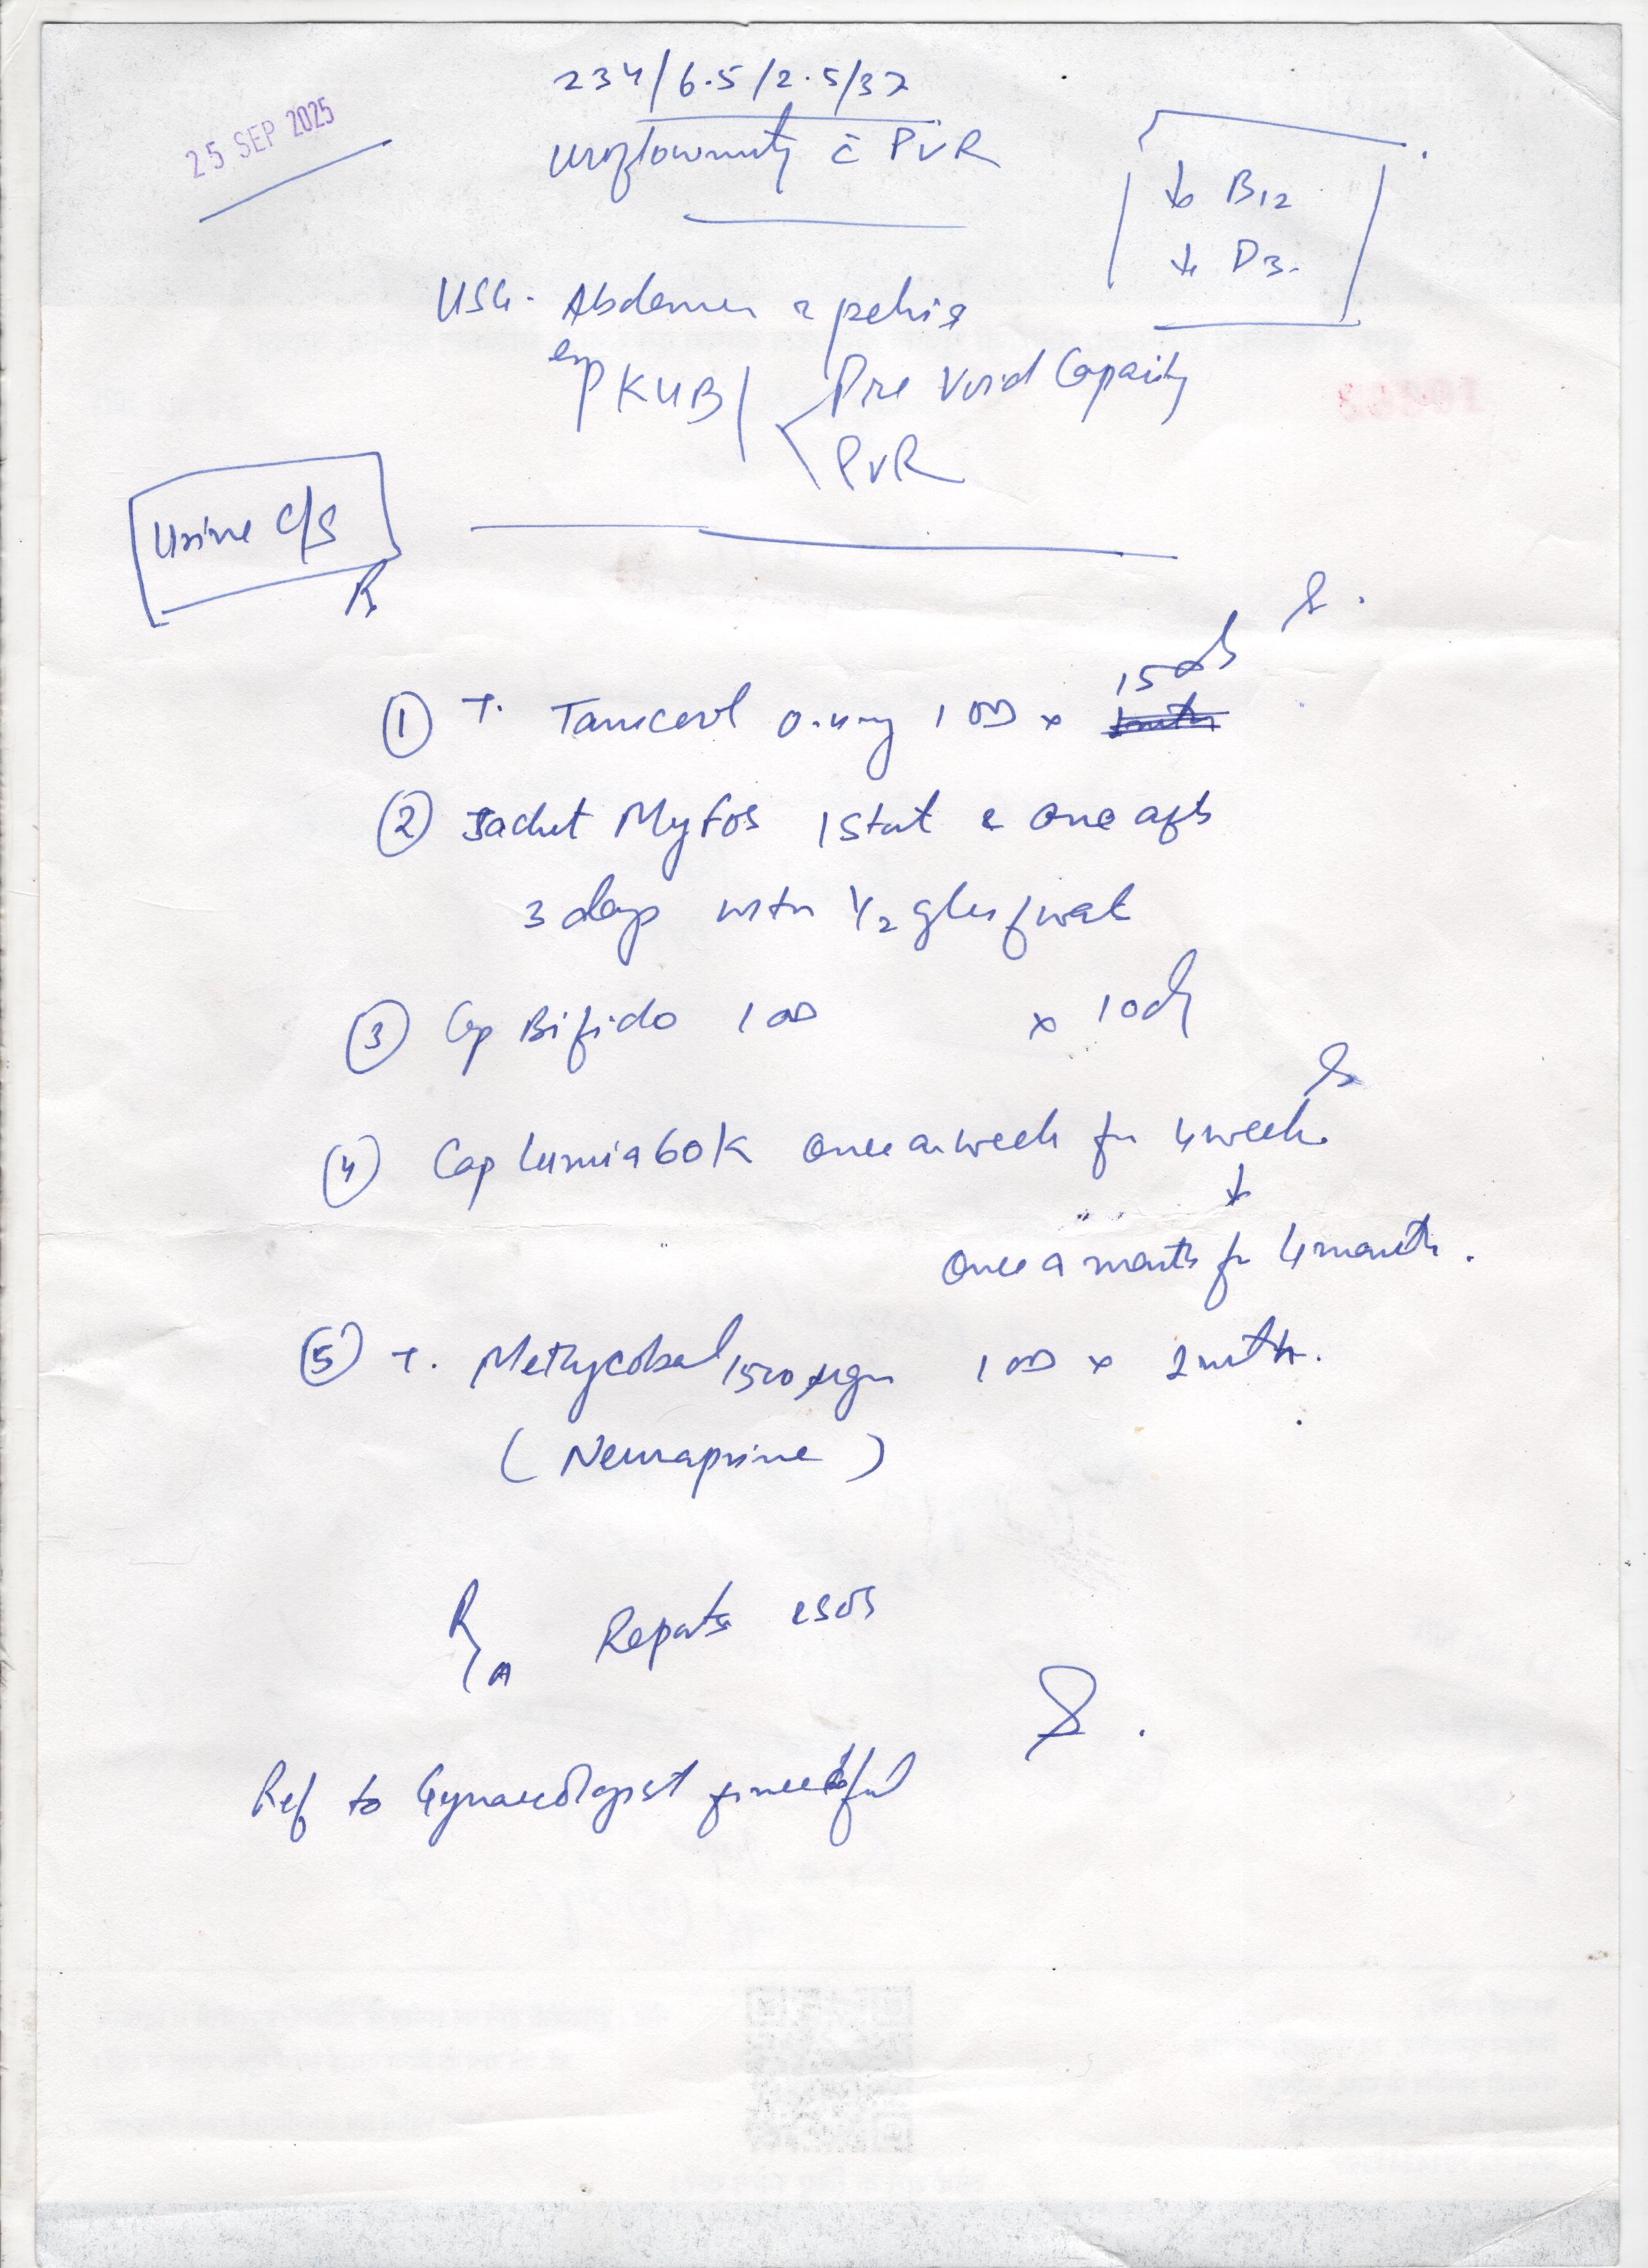 25 SEP 2025
234/6.5/2.5/37
Uroflowmetry c̄ PVR
↓ B12
↓ D3.
USG. Abdomen & pelvis
KUB
Pre Void Capacity
PVR
Urine C/S
R
① T. 0.4mg 1 OD x 15 ds
② Sachet Myfos 1 Stat & One aft
3 days with 1/2 glass of wat
③ Cap Bifido 1 OD x 10 d
④ Cap Lumia 60K Once a week for 4 week.
↓
Once a month for 4 month.
⑤ T. Methycobal 1500 µgm 1 OD x 2 mth.
( Neuraprime )
R/A Reports & SOS
Ref to Gynaecologist